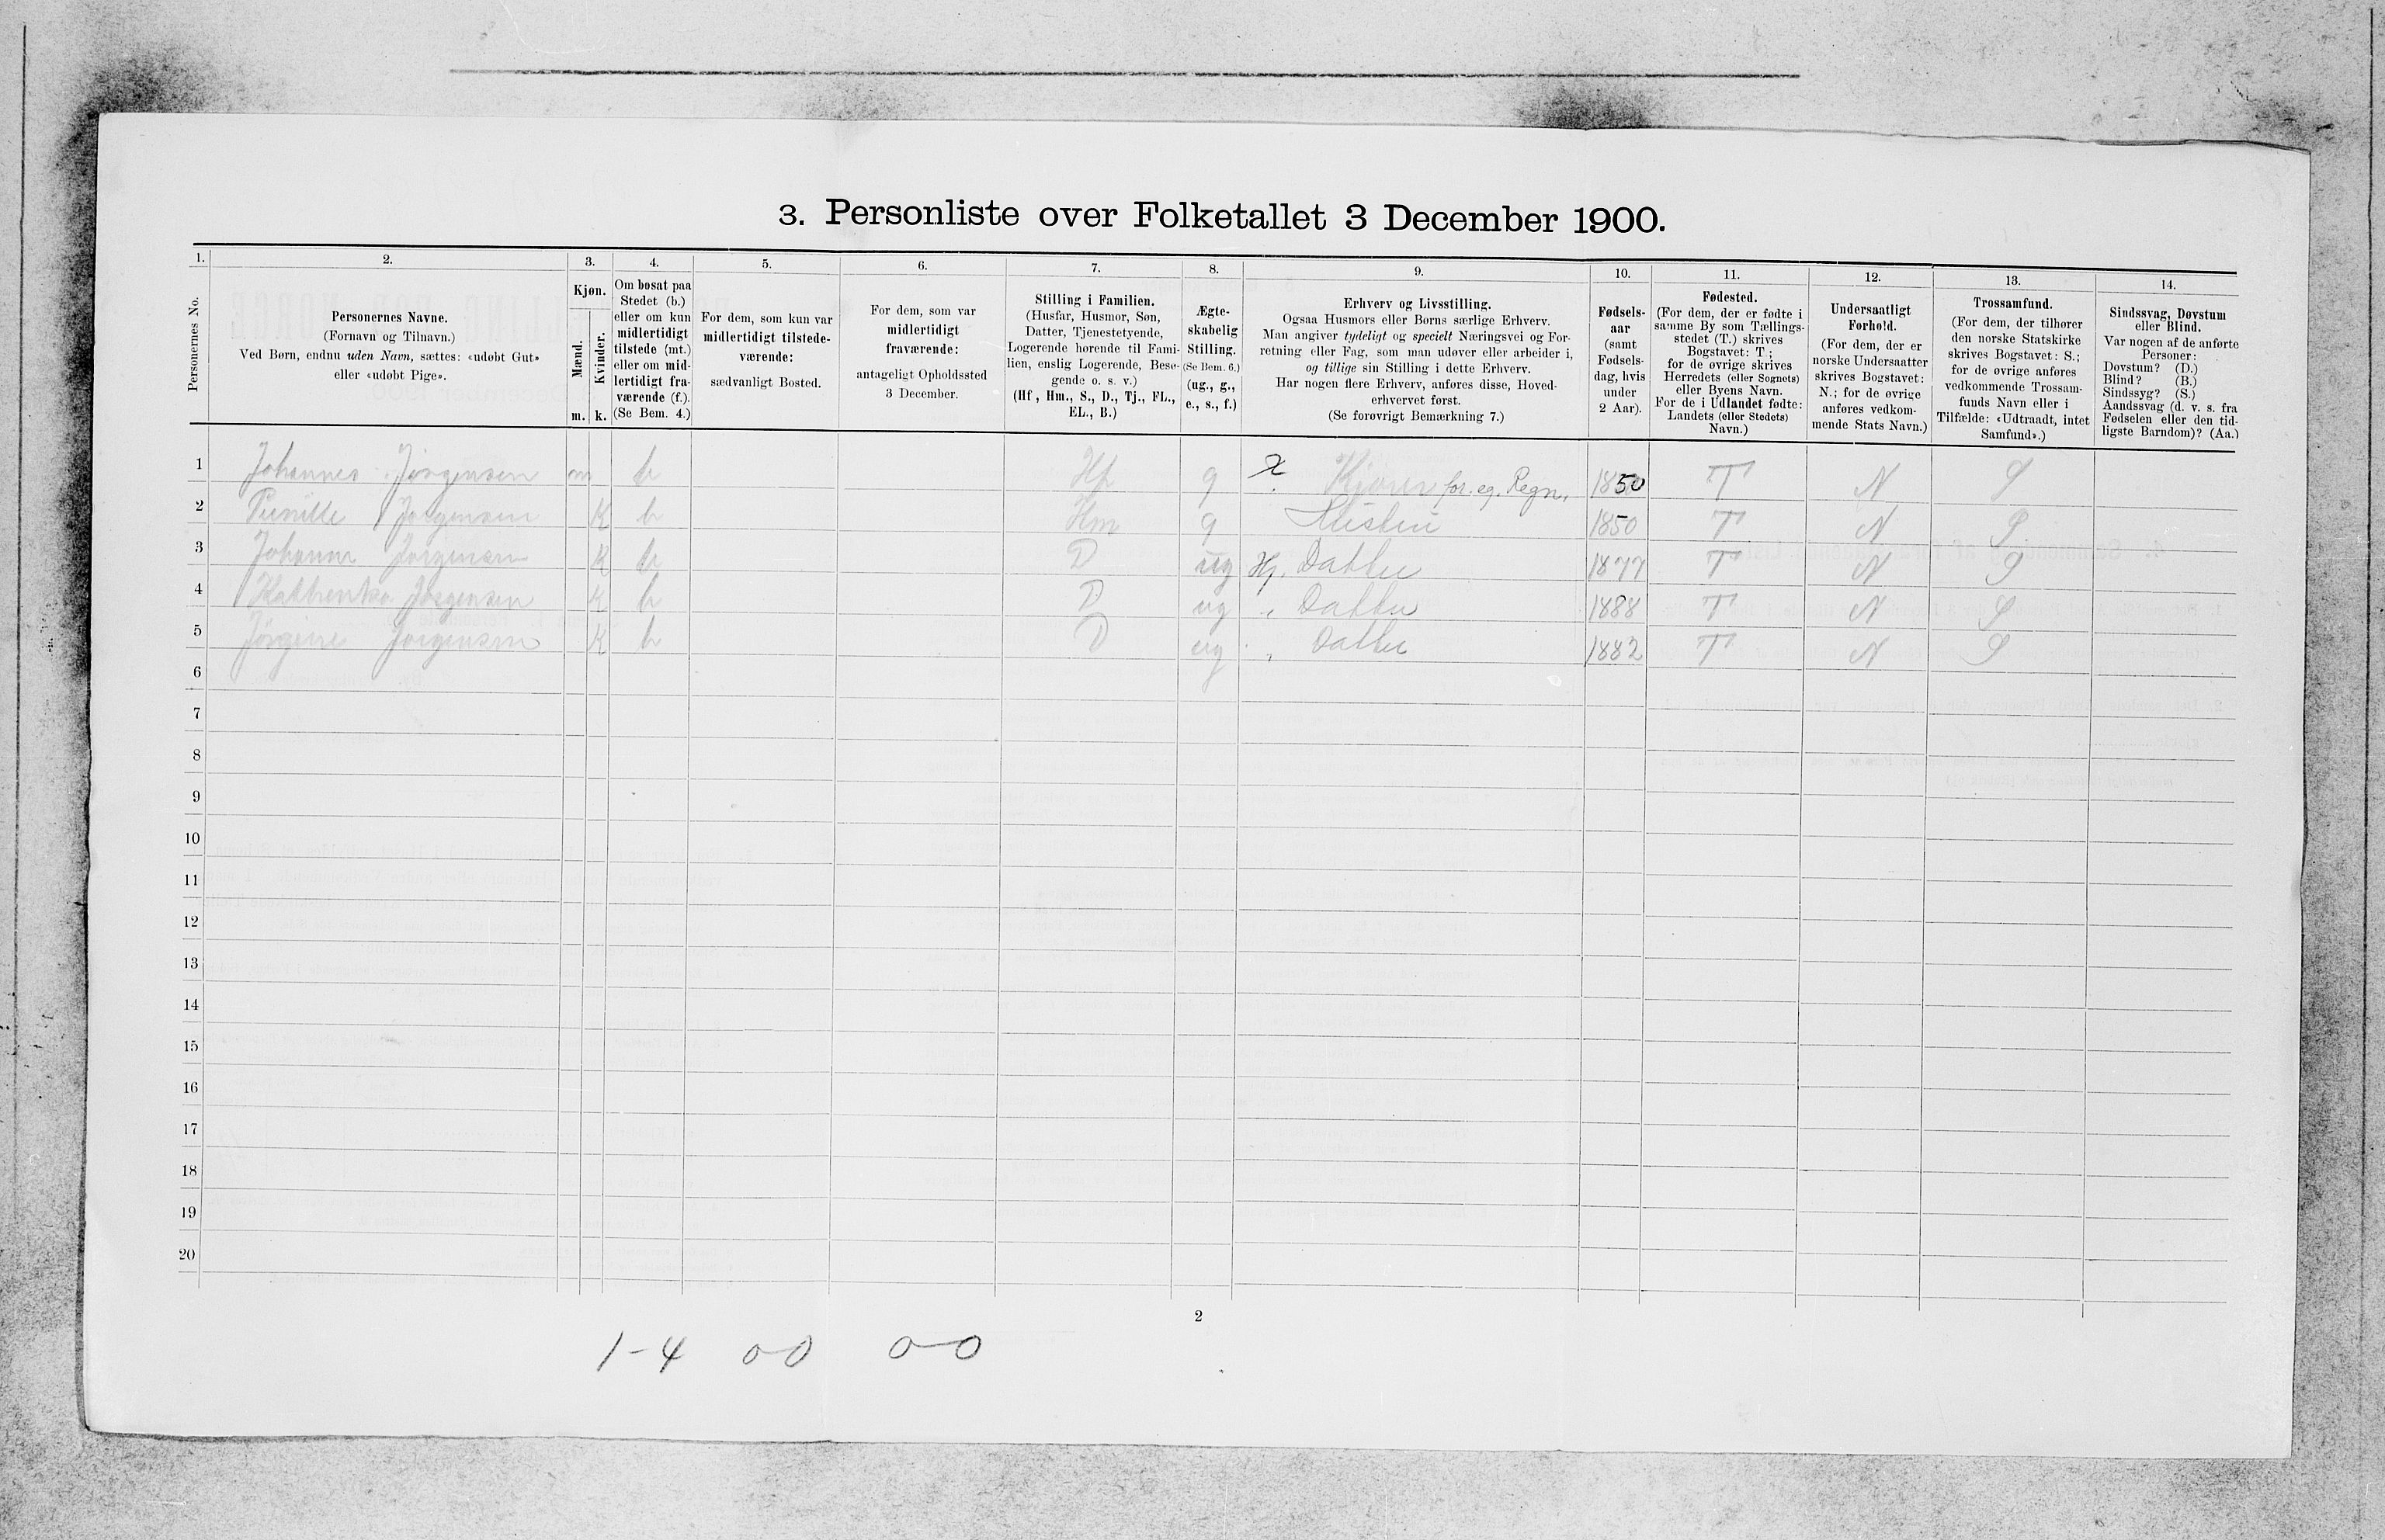 3. Personliste over Folketallet 3 December 1900.
1. 2. 3. 4. 5. 6. 7. 8. 9. 10. 11. 12. 13. 14.
Personernes No.
Personernes Navne.
(Fornavn og Tilnavn.)
Ved Børn, endnu uden Navn, sættes: «udøbt Gut»
eller «udøbt Pige».
Kjøn.
Mænd.
Kvinder.
m. k.
Om bosat paa
Stedet (b.)
eller om kun
midlertidigt
tilstede (mt.)
eller om mid-
lertidigt fra-
værende (f.).
(Se Bem. 4.)
For dem, som kun var
midlertidigt tilstede-
værende:
sædvanligt Bosted.
For dem, som var
midlertidigt
fraværende:
antageligt Opholdssted
3 December.
Stilling i Familien.
(Husfar, Husmor, Søn,
Datter, Tjenestetyende,
Logerende hørende til Fami-
lien, enslig Logerende, Besø-
gende o. s. v.)
(Hf, Hm., S., D., Tj., FL.,
EL., B.)
Ægte-
skabelig
Stilling.
(Se Bem. 6.)
(ug., g.,
e., s., f.)
Erhverv og Livsstilling.
Ogsaa Husmors eller Børns særlige Erhverv.
Man angiver tydeligt og specielt Næringsvei og For-
retning eller Fag, som man udøver eller arbeider i,
og tillige sin Stilling i dette Erhverv.
Har nogen flere Erhverv, anføres disse, Hoved-
erhvervet først.
(Se forøvrigt Bemærkning 7.)
Fødsels-
aar
(samt
Fødsels-
dag, hvis
under
2 Aar).
Fødested.
(For dem, der er fødte i
samme By som Tællings-
stedet (T.) skrives
Bogstavet: T;
for de øvrige skrives
Herredets (eller Sognets)
eller Byens Navn.
For de i Udlandet fødte:
Landets (eller Stedets)
Navn.)
Undersaatligt
Forhold.
(For dem, der er
norske Undersaatter
skrives Bogstavet:
N.; for de øvrige
anføres vedkom-
mende Stats Navn.)
Trossamfund.
(For dem, der tilhører
den norske Statskirke
skrives Bogstavet: S.;
for de øvrige anføres
vedkommende Trossam-
funds Navn eller i
Tilfælde: «Udtraadt, intet
Samfund».)
Sindssvag, Døvstum
eller Blind.
Var nogen af de anførte
Personer:
Døvstum? (D.)
Blind? (B.)
Sindssyg? (S.)
Aandssvag (d. v. s. fra
Fødselen eller den tid-
ligste Barndom)? (Aa.)
1 Johannes Jørgensen m b Hf g for. eg. Regn. 1850 T N S
2 Jørgensen K b Hm g 1850 T N S
3 Johanne Jørgensen K b D ug Hj. Datter 1877 T N S
4 Jørgensen K b D ug " Datter 1888 T N S
5 Jørgine Jørgensen K b D ug " Datter 1882 T N S
6
7
8
9
10
11
12
13
14
15
16
17
18
19
20
2
1-4 0-0 0-0